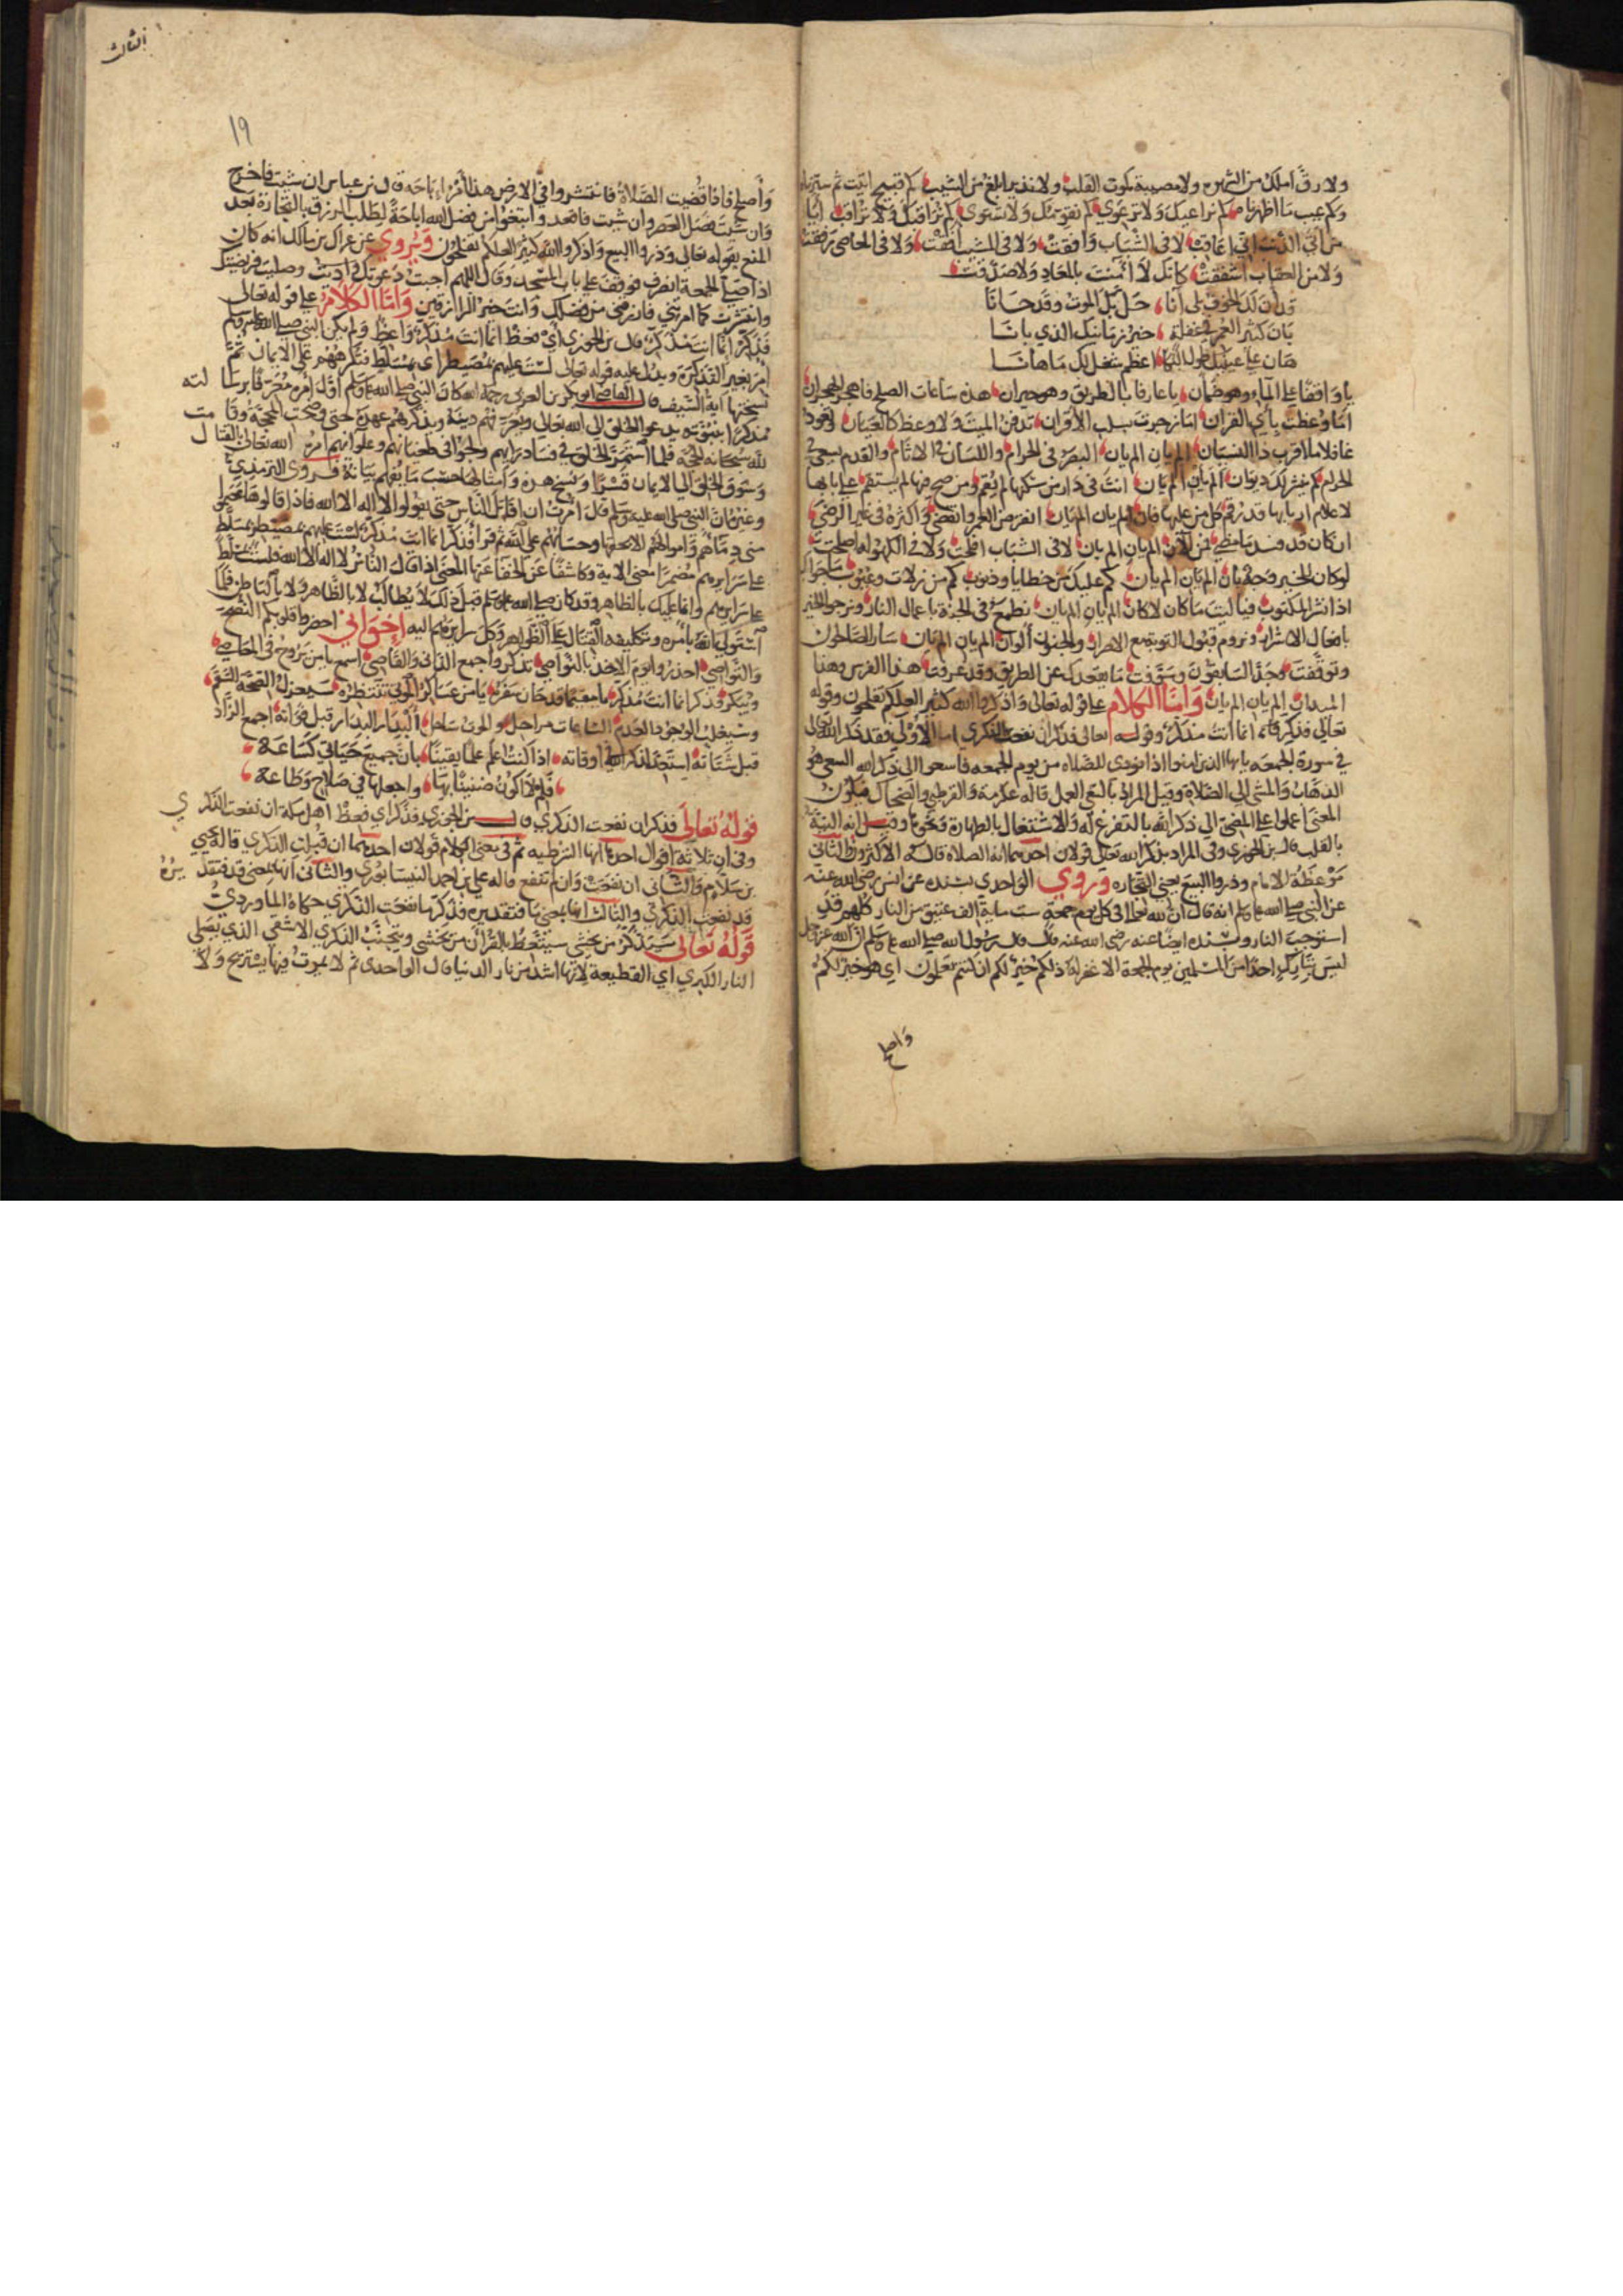 ولا رق املك من الشهوه ولا مصيبة كموت القلب ولا نذير ابلغ من الشيب كم قبيح اتيت ثم
وكم عيب ما اظهرناه كم نراعيك ولا ترعوي كم نقومك ولا تستوي كم نراقبك ولا تراقب
لا في الشباب وافقت ولا في المشيب افقت ولا في المعاصي
ولا من العقاب اشفقت كانك لا امنت بالمعاد ولا صدقت
قد آن لك الخوف بلى آنا حل بك الموت وقد حانا
بان كثير العمر في غفلة خير زمانيك الذي بانا
هان على عينيك طول البكا اعظم شغل لك ما هانا
يا واقفا على الماء وهو ظمان يا عارفا بالطريق وهو حيران هذه ساعات الصلح فاهجر الهجران
اما وعظت بآي القران اما زجرت بسلب الاقران تدفن الميت ولا وعظ كالعيان وتعود
غافلا ما اقرب ذا النسيان الم يان الم يان البصر في الحرام واللسان في الاثام والقدم يسعى في
الحرام لم ينشر لك ديوان الم يان الم يان انت في دار من سكنها لم يقم ومن صح فيها لم يستقم
لا علام اربابها قد رقم كل من عليها فان الم يان الم يان انفرض العمر وانقضى واكثره في غير الرضى
ان كان قد فسد ما مضى فمن الآن الم يان الم يان لا في الشباب افلحت ولا في الكهولة اصلحت
لو كان للخير وجه بان الم يان الم يان كم عليك من خطايا وذنوب كم من زلات وعيوب
اذا نشر المكتوب فيا ليت ما كان لا كان الم يان الم يان تطمع في الجنة باعمال النار وترجو الخير
بافعال الاشرار وتروم قبول التوبة مع الاصرار والجنون الوان الم يان الم يان سار الصالحون
وتوقفت وجد السابقون وسوفت ما يقعدك عن الطريق وقد عرفت هذا الفرس وهذا
الميدان الم يان الم يان واما الكلام على قوله تعالى واذكروا الله كثيرا لعلكم تفلحون وقوله
تعالى فذكر انما انت مذكر وقوله تعالى فذكر ان نفعت الذكرى اما الاولى فقد ذكر الله تعالى
في سورة الجمعه يا ايها الذين امنوا اذا نودي للصلاه من يوم الجمعه فاسعوا الى ذكر الله السعي هو
الذهاب والمشي الى الصلاة وقيل المراد بالسعي العمل قاله عكرمة والقرطبي والضحاك فيكون
المعنى اعملوا على المضي الى ذكر الله بالتفرغ له والاشتغال بالطهارة ونحوها وقيل انه النية
بالقلب قال بن الجوزي وفي المراد بذكر الله تعالى قولان احدهما انه الصلاة قاله الاكثرون والثاني
موعظة الامام وذروا البيع يعني التجاره وروي الواحدي بسنده عن انس رضي الله عنه
عن النبي صلى الله عليه وسلم انه قال ان لله تعالى في كل يوم جمعة ست ماية الف عتيق من النار كلهم قد
استوجب النار وبسنده ايضا عنه رضي الله عنه قال قال رسول الله صلى الله عليه وسلم ان الله عز وجل
ليس بتارك احدا من المسلمين يوم الجمعة الا غفر له ذلكم خير لكم ان كنتم تعلمون اي هو خير لكم
واصلح
الثالث
١٩
واصلح فاذا قضيت الصلاة فانتشروا في الارض هذا امر اباحه قال بن عباس ان شيت فاخرج
وان شيت فصل العصر وان شيت فاقعد وابتغوا من فضل الله اباحة لطلب الرزق بالتجارة بعد
المنع بقوله تعالى وذروا البيع واذكروا الله كثيرا لعلكم تفلحون ويروى عن عراك بن مالك انه كان
اذا صلى الجمعة انصرف فوقف على باب المسجد وقال اللهم اجبت دعوتك وصليت فريضتك
وانتشرت كما امرتني فارزقني من فضلك وانت خير الرازقين واما الكلام على قوله تعالى
فذكر انما انت مذكر قال بن الجوزي اي فعظ انما انت مذكر واعظ ولم يكن النبي صلى الله عليه وسلم
امر بغير التذكرة ويدل عليه قوله تعالى لست عليهم بمصيطر اي بمسلط فتكرههم على الايمان ثم
نسختها اية السيف قال القاضي ابو بكر بن العربي رحمه الله كان النبي صلى الله عليه وسلم اول امره معرفا برسا لته
مذكرا بنبوته يدعو الخلق الى الله تعالى ويعرفهم دينه ويذكرهم عهده حتى وضحت المحجة وقا مت
لله سبحانه الحجه فلما استمر الخلق في فساد رايهم ولجوا في طغيانهم وعلوائهم امر الله تعالى بالقتا ل
وسوق الخلق الى الايمان قسرا ونسخ هذه وامثالها حسب ما يفهم بيانه فروى الترمذي
وغيره ان النبي صلى الله عليه وسلم قال امرت ان اقاتل الناس حتى يقولوا لا اله الا الله فاذا قالوها عصموا
مني دماهم واموالهم الا بحقها وحسابهم على الله ثم قرا فذكر انما انت مذكر لست عليهم بمصيطر بمسلط
على سرايرهم مفسرا معنى الاية وكاشفا عن الخفا عنها المعنى اذا قال الناس لا اله الا الله فلست بمسلط
على سرايرهم وانما عليك بالظاهر وقد كان صلى الله عليه وسلم قبل ذلك لا يطالب لا بالظاهر ولا بالباطن فلما
استولى الله بامره وتكليفه القتال على الظواهر وكل سرايرهم اليه اخواني احضروا قلوبكم النصح
والتواصي احذروا يوم الاخذ بالنواصي تذكروا جمع الداني والقاصي اسمع يا من يروح في المعاصي
ويبكر فذكر انما انت مذكر يا مقيما قد حان سفره يا من عساكر الموتى تنتظره سيعزل الصحة السقم
وسيغلب الوجود العدم الساعات مراحل والموت ساحل البدار البدار قبل فواته اجمع الزاد
قبل شتاته استعد لذكر اوقاته اذا كنت اعلم علما يقينا بان جميع حياتي كساعه
فلم لا اكون ضنينا بها واجعلها في صلاح وطاعه
قوله تعالى فذكر ان نفعت الذكرى قال بن الجوزي فذكر اي فعظ اهل مكه ان نفعت الذكر ى
وفي ان ثلاثة اقوال احدها انها الشرطيه ثم في معنى الكلام قولان احدهما ان قبلت الذكرى قاله يحيى
بن سلام والثاني ان نفعت وان لم تنفع قاله علي بن احمد النيسابوري والثاني انها بمعنى قد فتقد يره
قد نفعت الذكرى والثالث انها بمعنى ما فتقديره فذكر ما نفعت الذكرى حكاه الماوردي
قوله تعالى سيذكر من يخشى سيتعظ بالقرآن من يخشى ويتجنب الذكرى الاشقى الذي يصلى
النار الكبرى اي الفظيعة لانها اشد من نار الدنيا قال الواحدي ثم لا يموت فيها يستريح ولا